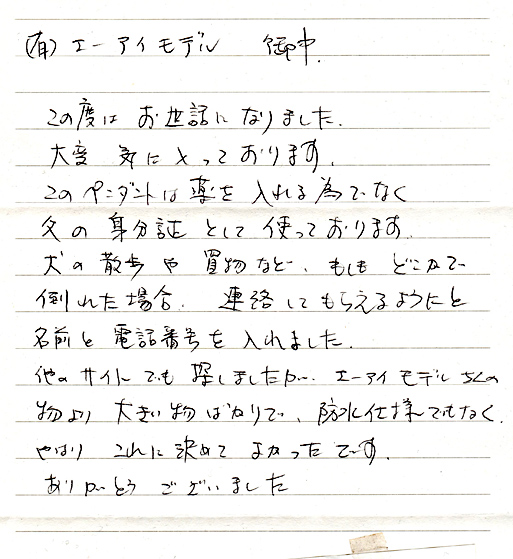 (有)エーアイモデル 御中.
この度は お世話に なりました.
大変 気に入っております.
このペンダントは薬を入れる為でなく
父の身分証として使っております.
犬の散歩や買物など、もしも どこかで
倒れた場合. 連絡してもらえるようにと
名前と電話番号を入れました.
他のサイトでも探しましたが… エーアイモデルさんの
物より大きい物ばかりで、防水仕様でもなく.
やはり これに決めて よかったです.
ありがとう ございました